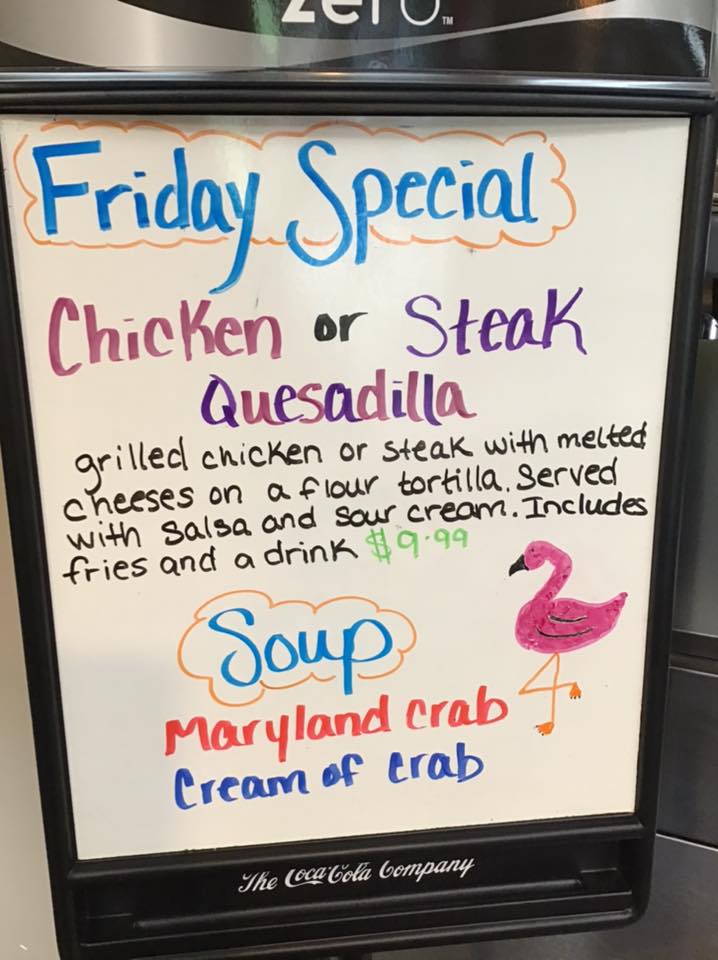 zero™
Friday Special
Chicken or Steak
Quesadilla
grilled chicken or steak with melted
cheeses on a flour tortilla. Served
with salsa and sour cream. Includes
fries and a drink $9.99
Soup
Maryland crab
Cream of crab
The Coca-Cola Company